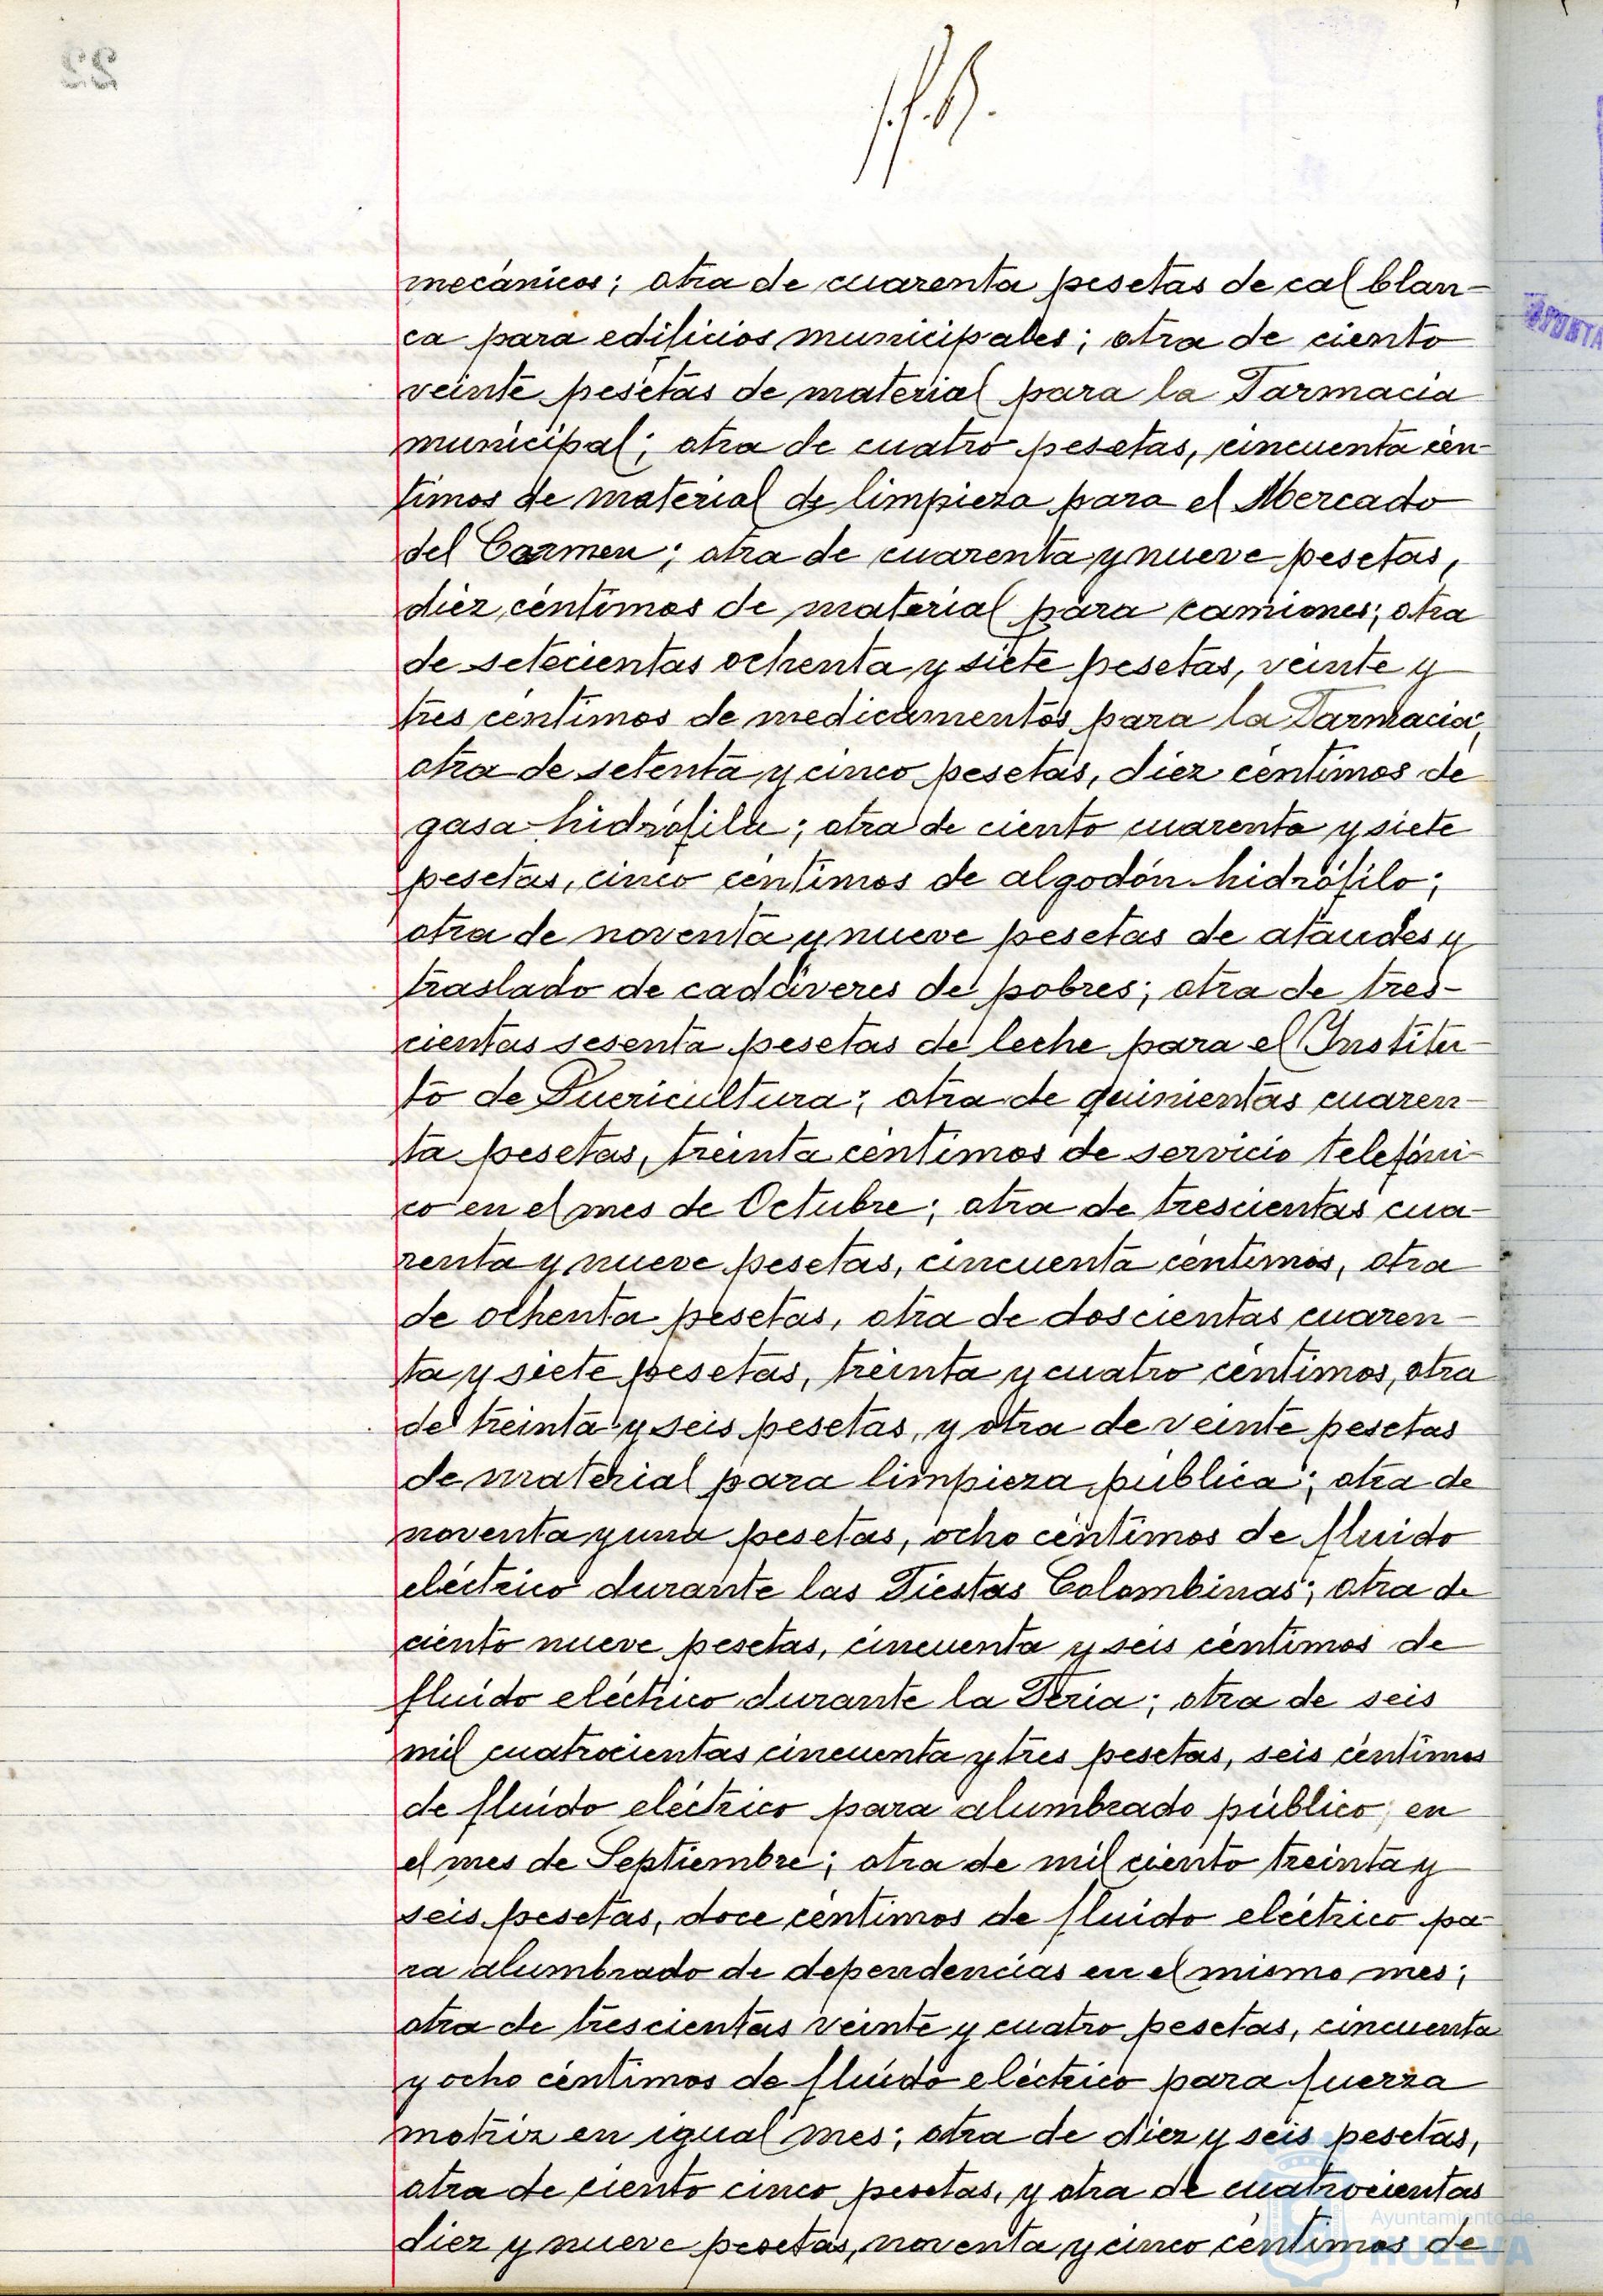 22
mecánicos; otra de cuarenta pesetas de cal blan-
ca para edificios municipales; otra de ciento
veinte pesetas de material para la Farmacia
municipal; otra de cuatro pesetas, cincuenta cén-
timos de material de limpieza para el Mercado
del Carmen; otra de cuarenta y nueve pesetas,
diez céntimos de material para camiones; otra
de setecientas ochenta y siete pesetas, veinte y
tres céntimos de medicamentos para la Farmacia;
otra de setenta y cinco pesetas, diez céntimos de
gasa hidrófila; otra de ciento cuarenta y siete
pesetas, cinco céntimos de algodón hidrófilo;
otra de noventa y nueve pesetas de ataudes y
traslado de cadáveres de pobres; otra de tres-
cientas sesenta pesetas de leche para el Institu-
to de Puericultura; otra de quinientas cuaren-
ta pesetas, treinta céntimos de servicio telefóni-
co en el mes de Octubre; otra de trescientas cua-
renta y nueve pesetas, cincuenta céntimos, otra
de ochenta pesetas, otra de doscientas cuaren-
ta y siete pesetas, treinta y cuatro céntimos, otra
de treinta y seis pesetas, y otra de veinte pesetas
de material para limpieza pública; otra de
noventa y una pesetas, ocho céntimos de fluido
eléctrico durante las Fiestas Colombinas; otra de
ciento nueve pesetas, cincuenta y seis céntimos de
fluído eléctrico durante la Feria; otra de seis
mil cuatrocientas cincuenta y tres pesetas, seis céntimos
de fluído eléctrico para alumbrado público, en
el mes de Septiembre; otra de mil ciento treinta y
seis pesetas, doce céntimos de fluído eléctrico pa-
ra alumbrado de dependencias en el mismo mes;
otra de trescientas veinte y cuatro pesetas, cincuenta
y ocho céntimos de fluído eléctrico para fuerza
motriz en igual mes; otra de diez y seis pesetas,
otra de ciento cinco pesetas, y otra de cuatrocientas
diez y nueve pesetas, noventa y cinco céntimos de
Ayuntamiento de
HUELVA